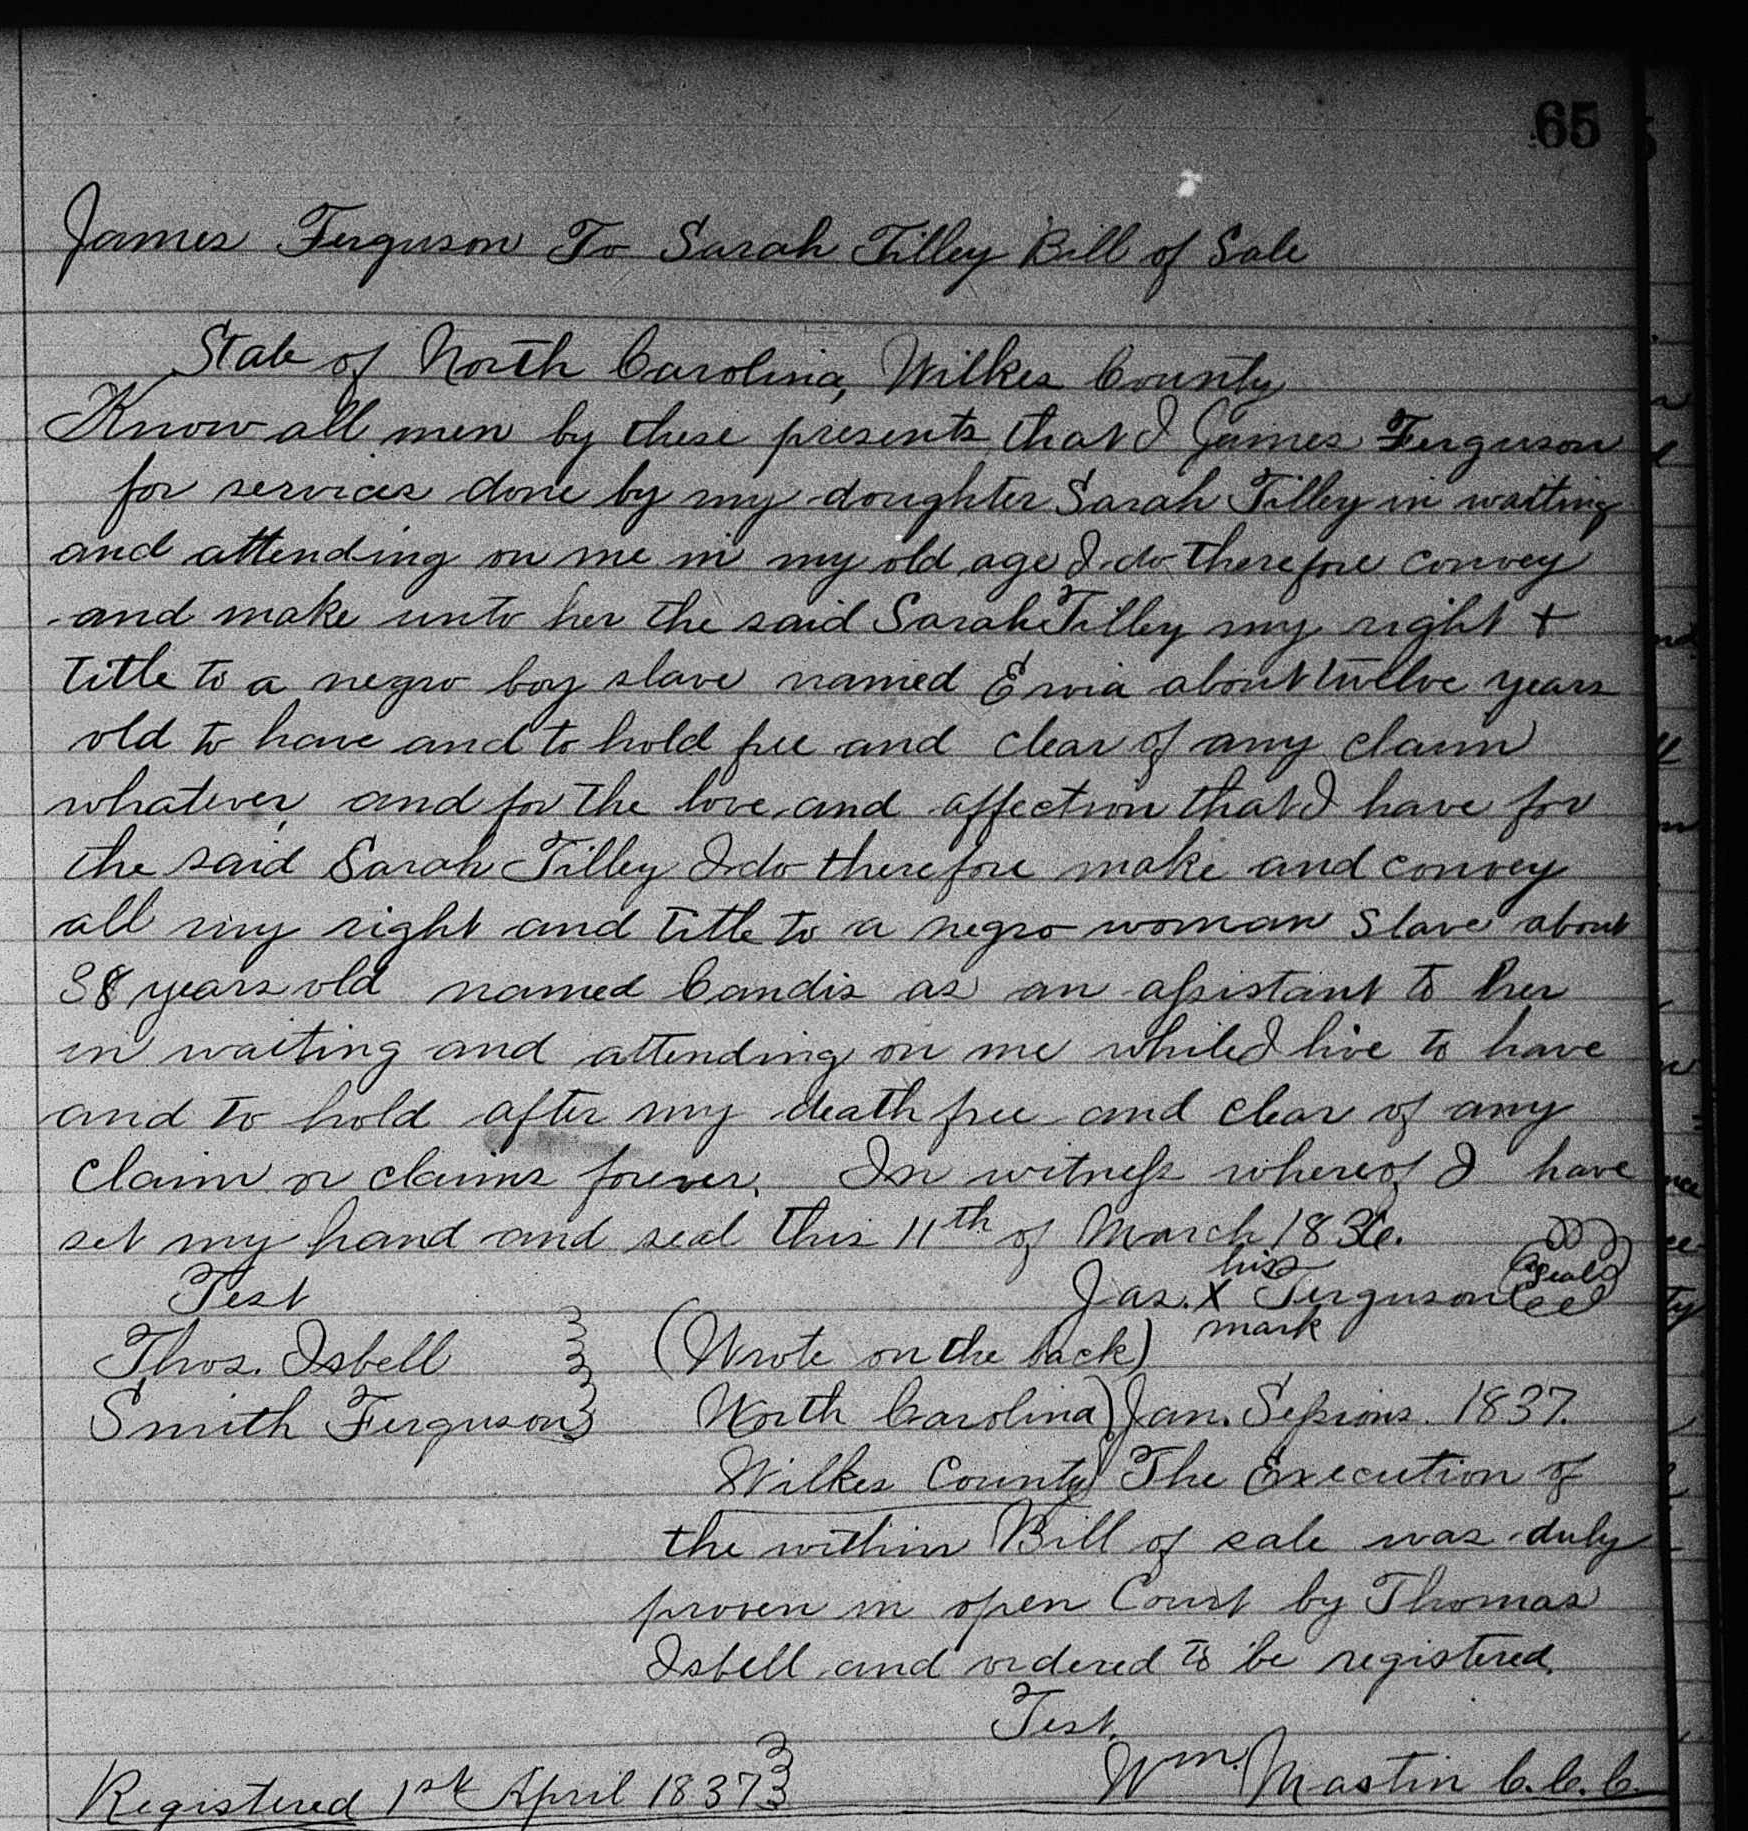 65
James Ferguson To Sarah Tilley Bill of Sale
State of North Carolina, Wilkes County
Know all men by these presents that I James Ferguson
for services done by my doughter Sarah Tilley in waiting
and attending on me in my old age I do therefore convey
and make unto her the said Sarah Tilley my right +
title to a negro boy slave named about twelve years
old to have and to hold free and clear of any claim
whatever, and for the love and affection that I have for
the said Sarah Tilley I do therefore make and convey
all my right and title to a negro woman slave about
38 years old named Candis as an assistant to her
in waiting and attending on me while I live to have
and to hold after my death free and clear of any
claim or claims forever. In witness whereof I have
set my hand and seal this 11th of March 1836.
Test
his
Jas. X Ferguson (seal)
mark
Thos. Isbell
(Wrote on the back)
Smith Ferguson
North Carolina) Jan. Sessions. 1837.
Wilkes County) The Execution of
the within Bill of sale was duly
proven in open Court by Thomas
Isbell and ordered to be registered.
Test.
Registered 1st April 1837
Wm. Mastin C.C.C.